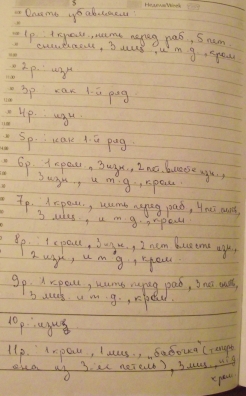 Опять убавляем
1р. 1 кром, нить перед раб, 5 пет.
снимаем, 3 лиц, и т.д., кром
2р.: изн
3р. как 1-й ряд
4р. изн.
5р.: как 1-й ряд.
6р. 1 кром, 3 изн., 2 пет. вместе изн.,
3 изн., и т.д., кром.
7р. 1 кром, нить перед раб, 4 пет
3 лиц, и т.д., кром
8р.: 1 кром, 3 изн., 2 пет вместе изн.,
2 изн, и т.д., кром.
9р. 1 кром, нить перед раб, 3 пет
3 лиц и т.д., кром.
10р.: изн
11р.: 1 кром, 1 лиц, „бабочка"
из 3-ех петель), 3 лиц, и т.д
кром.